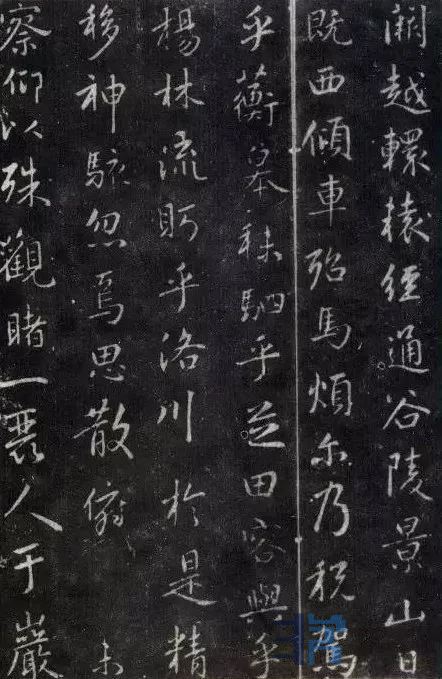 闕越轘轅經通谷陵景山日
既西傾車殆馬煩尒乃税駕
乎蘅皋秣駟乎芝田容與乎
楊林流眄乎洛川於是精
移神駭忽焉思散俯未
察仰以殊觀睹一麗人于巖